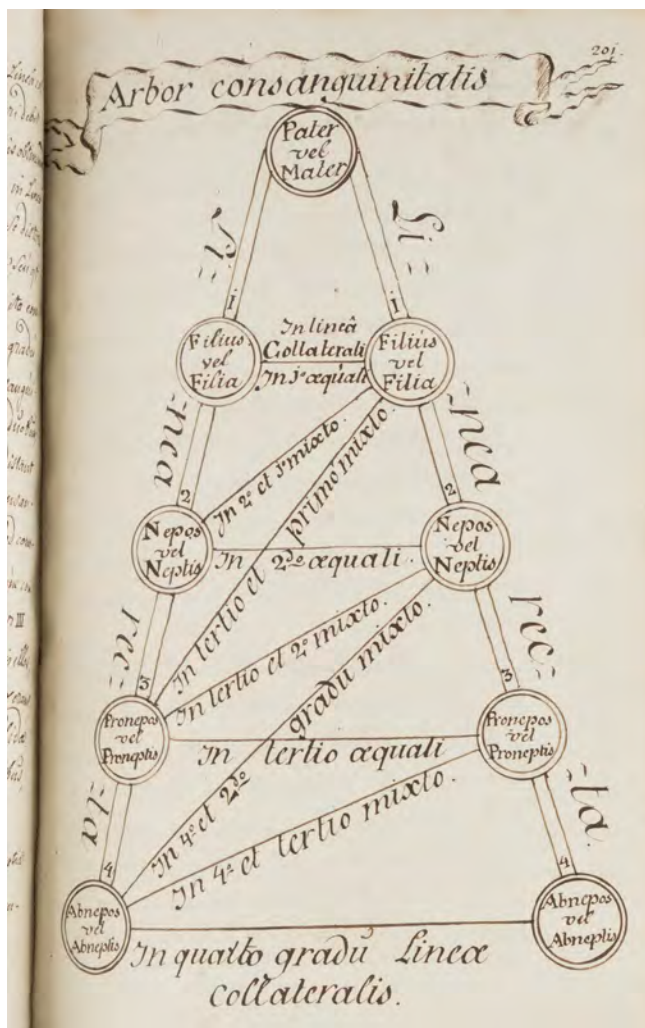 201.
Arbor consanguinitatis
Pater
vel
Mater
Li=
Li=
1
1
Filius
vel
Filia
In lineâ
Collaterali
In 1º æquali
Filiús
vel
Filia
-nea
-nea
In 2º et 1º mixto.
In tertio et primo mixto.
2
2
Nepos
vel
Neptis
In 2do æquali.
Nepos
vel
Neptis
rec=
rec=
In tertio et 2º mixto.
In 4º et 2do gradú mixto.
3
3
Pronepos
vel
Proneptis
In tertio æquali
Pronepos
vel
Proneptis
-ta
-ta.
In 4º et tertio mixto.
4
4
Abnepos
vel
Abneptis
Abnepos
vel
Abneptis
In quarto gradú Lineæ
collateralis.